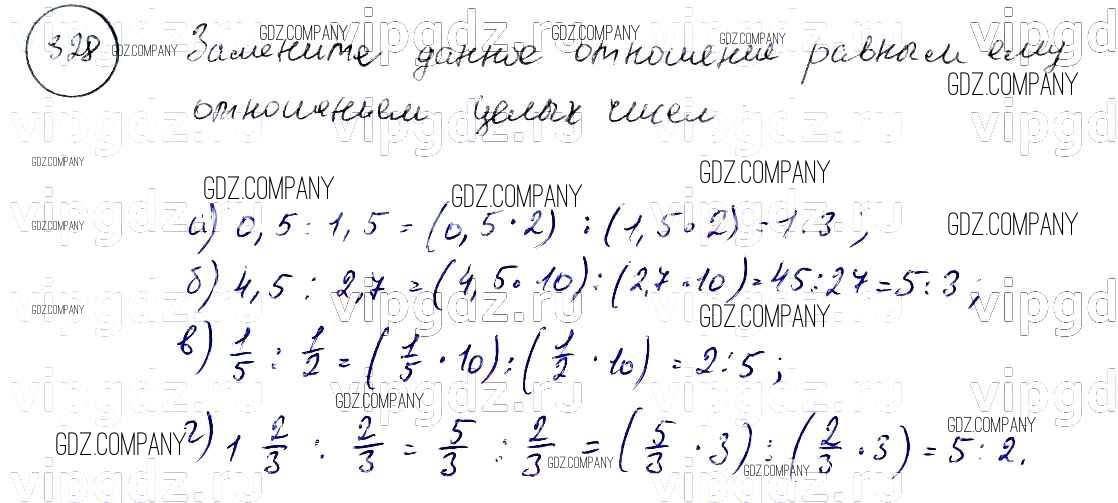 328 Замените данное отношение равным ему
отношением целых чисел
а) 0,5 : 1,5 = (0,5 · 2) : (1,5 · 2) = 1 : 3 ;
б) 4,5 : 2,7 = (4,5 · 10) : (2,7 · 10) = 45 : 27 = 5 : 3 ;
в) 1/5 : 1/2 = (1/5 · 10) : (1/2 · 10) = 2 : 5 ;
г) 1 2/3 : 2/3 = 5/3 : 2/3 = (5/3 · 3) : (2/3 · 3) = 5 : 2.
vipgdz.ru
GDZ.COMPANY